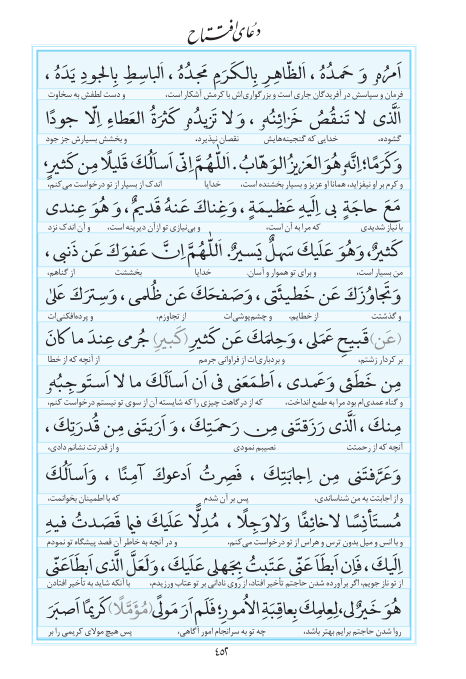 دعای افتتاح
اَمرُهُ وَ حَمدُهُ ، اَلظّاهِرِ بِالكَرَمِ مَجدُهُ ، اَلباسِطِ بِالجودِ يَدَهُ ،
فرمان و سپاسش در آفریدگان جاری است و بزرگواری‌اش با کرمش آشکار است، و دست لطفش به سخاوت
اَلَّذی لا تَنقُصُ خَزائِنُهُ ، وَ لا تَزيدُهُ كَثرَةُ العَطاءِ اِلّا جودًا
گشوده، خدایی که گنجینه‌هایش نقصان نپذیرد، و بخشش بسیارش جز جود
وَ كَرَمًا؛اِنَّهُ هُوَ العَزيزُ الوَهّابُ. اَللّٰهُمَّ اِنّی اَسأَلُكَ قَليلًا مِن كَثيرٍ،
و کرم بر او نیفزاید، همانا او عزیز و بسیار بخشنده است، خدایا اندک از بسیار از تو درخواست می‌کنم،
مَعَ حاجَةٍ بی اِلَيهِ عَظيمَةٍ ، وَغِناكَ عَنهُ قَديمٌ ، وَ هُوَ عِندی
با نیاز شدیدی که مرا به آن است، و بی‌نیازی تو از آن دیرینه است، و آن اندک نزد
كَثيرٌ، وَهُوَ عَلَيكَ سَهلٌ يَسيرٌ. اَللّٰهُمَّ اِنَّ عَفوَكَ عَن ذَنبی ،
من بسیار است، و برای تو هموار و آسان. خدایا بخششت از گناهم،
وَتَجاوُزَكَ عَن خَطيئَتی ، وَصَفحَكَ عَن ظُلمی ، وَسِترَكَ عَلىٰ
و گذشتت از خطایم، و چشم‌پوشی‌ات از تجاوزم، و پرده‌افکنی‌ات
(عَن) قَبيحِ عَمَلی ، وَحِلمَكَ عَن كَثيرِ (كَبيرِ) جُرمی عِندَ ما كانَ
بر کردار زشتم، و بردباری‌ات از فراوانی جرمم از آنچه که از خطا
مِن خَطَئی وَعَمدی ، اَطمَعَنی فی اَن اَسأَلَكَ ما لا اَستَوجِبُهُ
و گناه عمدی‌ام بود مرا به طمع انداخت، که از درگاهت چیزی را که شایسته آن از سوی تو نیستم درخواست کنم،
مِنكَ ، الَّذی رَزَقتَنی مِن رَحمَتِكَ ، وَ اَرَيتَنی مِن قُدرَتِكَ ،
آنچه که از رحمتت نصیبم نمودی و از قدرتت نشانم دادی،
وَعَرَّفتَنی مِن اِجابَتِكَ ، فَصِرتُ اَدعوكَ آمِنًا ، وَاَسأَلُكَ
و از اجابتت به من شناساندی، پس بر آن شدم که با اطمینان بخوانمت،
مُستَأنِسًا لاخائِفًا وَلاوَجِلًا ، مُدِلًّا عَلَيكَ فيما قَصَدتُ فيهِ
و با انس و میل بدون ترس و هراس از تو درخواست می‌کنم، و در آنچه به خاطر آن قصد پیشگاه تو نمودم
اِلَيكَ ، فَاِن اَبطَأَ عَنّی عَتَبتُ بِجَهلی عَلَيكَ ، وَلَعَلَّ الَّذی اَبطَأَ عَنّی
از تو ناز جویم، اگر برآورده شدن حاجتم تأخیر افتاد، از روی نادانی بر تو عتاب ورزیدم، با آنکه شاید به تأخیر افتادن
هُوَ خَيرٌلی،لِعِلمِكَ بِعاقِبَةِ الاُمورِ؛فَلَم اَرَ مَولًى(مُؤَمَّلًا)كَريمًا اَصبَرَ
روا شدن حاجتم برایم بهتر باشد، چه تو به سرانجام امور آگاهی، پس هیچ مولای کریمی را بر
٤٥٢